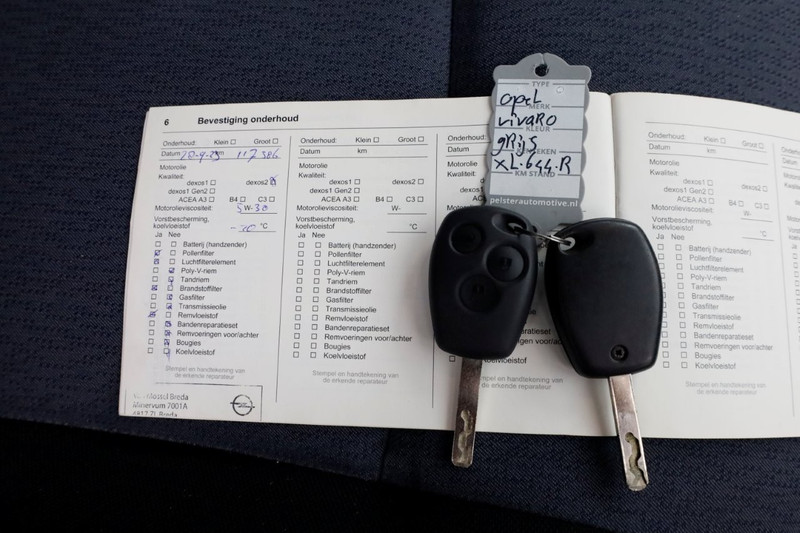 6 Bevestiging onderhoud
Onderhoud: Klein Groot
Datum km 117386
Motorolie
Kwaliteit:
dexos1 dexos2
dexos1 Gen2
ACEA A3 B4 C3
Motorolieviscositeit: 5 W-30
Vorstbescherming,
koelvloeistof °C
Ja Nee
Batterij (handzender)
Pollenfilter
Luchtfilterelement
Poly-V-riem
Tandriem
Brandstoffilter
Gasfilter
Transmissieolie
Remvloeistof
Bandenreparatieset
Remvoeringen voor/achter
Bougies
Koelvloeistof
Stempel en handtekening van
de erkende reparateur
Breda
Minervum 7001A
Breda
Onderhoud: Klein Groot
Datum km
Motorolie
Kwaliteit:
dexos1 dexos2
dexos1 Gen2
ACEA A3 B4 C3
Motorolieviscositeit: W-
Vorstbescherming,
koelvloeistof °C
Ja Nee
Batterij (handzender)
Pollenfilter
Luchtfilterelement
Poly-V-riem
Tandriem
Brandstoffilter
Gasfilter
Transmissieolie
Remvloeistof
Bandenreparatieset
Remvoeringen voor/achter
Bougies
Koelvloeistof
Stempel en handtekening van
de erkende reparateur
Datum
Motorolie
Kwaliteit:
W-
°C
TYPE
opel
MERK
vivaro
KLEUR
grijs
KENTEKEN
XL-644-R
KM STAND
pelsterautomotive.nl
Onderhoud: Klein Groot
Datum km
Motorolie
Kwaliteit:
dexos1 dexos2
dexos1 Gen2
ACEA A3 B4 C3
Motorolieviscositeit: W-
Vorstbescherming,
koelvloeistof °C
Ja Nee
Batterij (handzender)
Pollenfilter
Luchtfilterelement
Poly-V-riem
Tandriem
Brandstoffilter
Gasfilter
Transmissieolie
Remvloeistof
Bandenreparatieset
Remvoeringen voor/achter
Bougies
Koelvloeistof
Stempel en handtekening van
de erkende reparateur